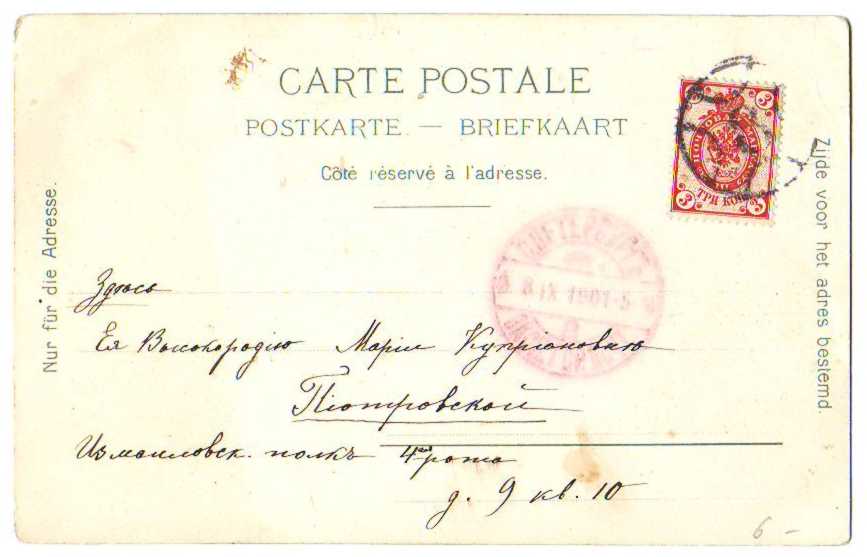 CARTE POSTALE
POSTKARTE. — BRIEFKAART
Côté réservé à l'adresse.
Nur für die Adresse.
Zijde voor het adres bestemd.
3 3
ТРИ КОП.
3 3
8 IX 1901
Здѣсь
Ея Высокородію Маріи Купріоновнѣ
Піотровской
Измаиловск. полкъ 4ая рота
д. 9 кв. 10
6 -